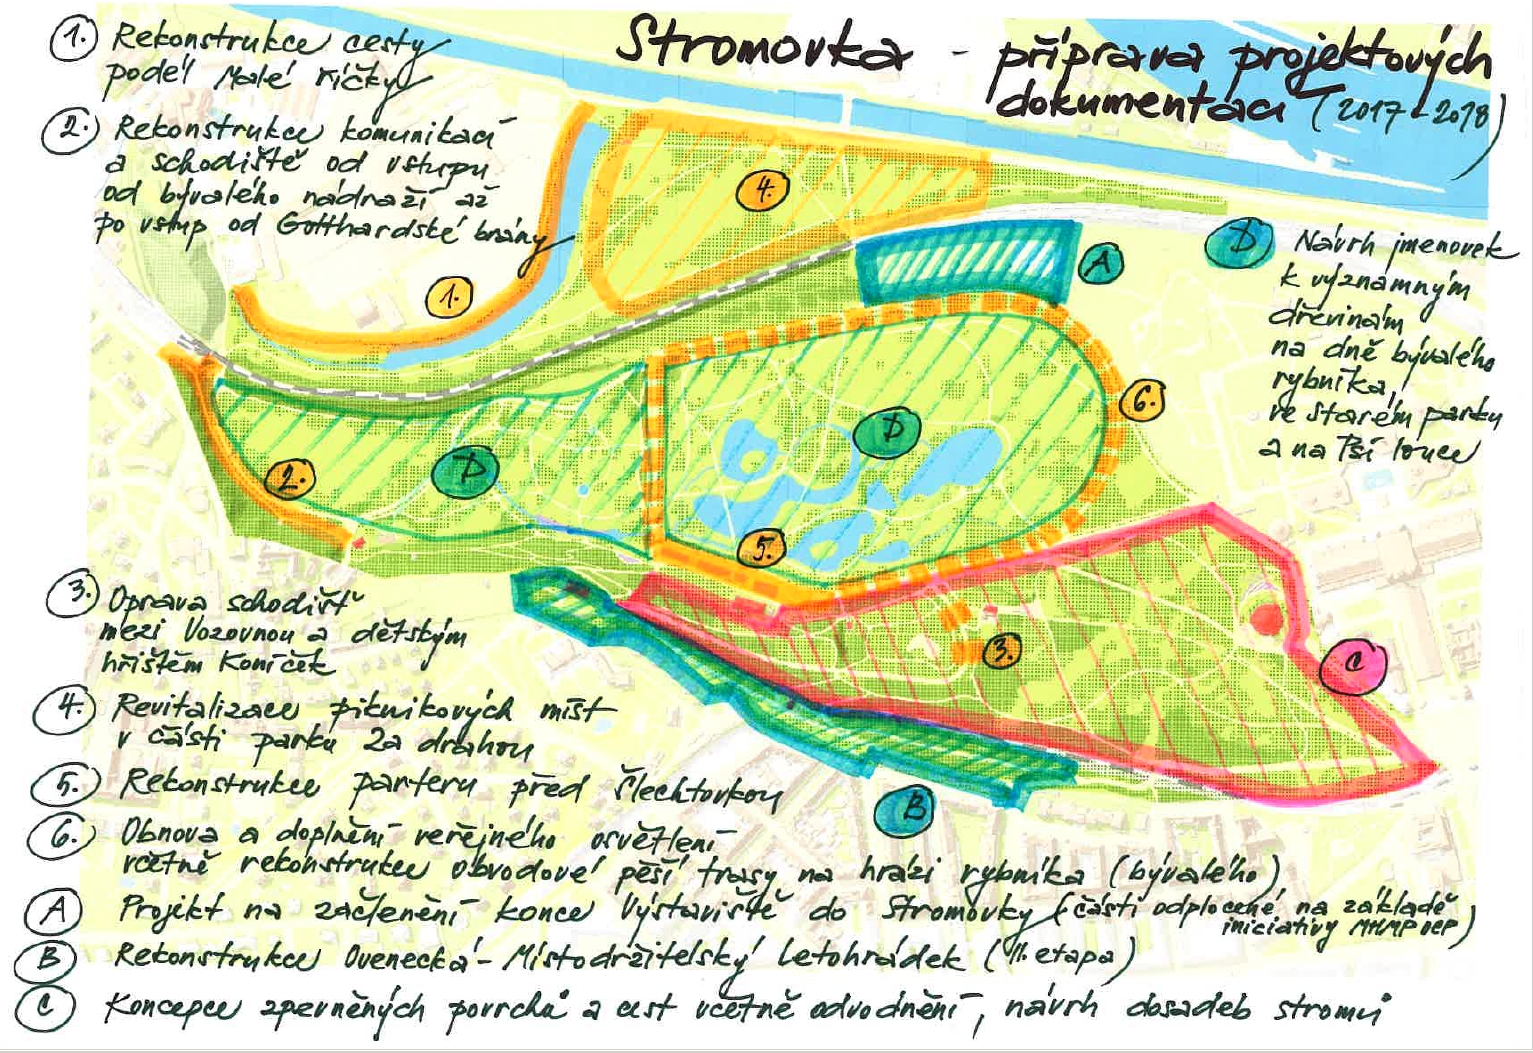 Stromovka - příprava projektových
dokumentací (2017-2018)
1. Rekonstrukce cesty
podél Malé říčky
2. Rekonstrukce komunikací
a schodiště od vstupu
od bývalého nádraží až
po vstup od Gotthardské brány
4.
A
D Návrh jmenovek
k významným
dřevinám
na dně bývalého
rybníka,
ve starém parku
a na Psí louce
1.
6.
D
D
2.
5.
3. Oprava schodišť
mezi Vozovnou a dětským
hřištěm Koníček
3.
C
4. Revitalizace piknikových míst
v části parku za drahou
5. Rekonstrukce parteru před Šlechtovkou
B
6. Obnova a doplnění veřejného osvětlení
včetně rekonstrukce obvodové pěší trasy na hrázi rybníka (bývalého)
A Projekt na začlenění konce Výstaviště do Stromovky (části odplocené na základě
iniciativy MHMP OCP)
B Rekonstrukce Ovenecká - Místodržitelský letohrádek (II. etapa)
C Koncepce zpevněných povrchů a cest včetně odvodnění, návrh dosadeb stromů